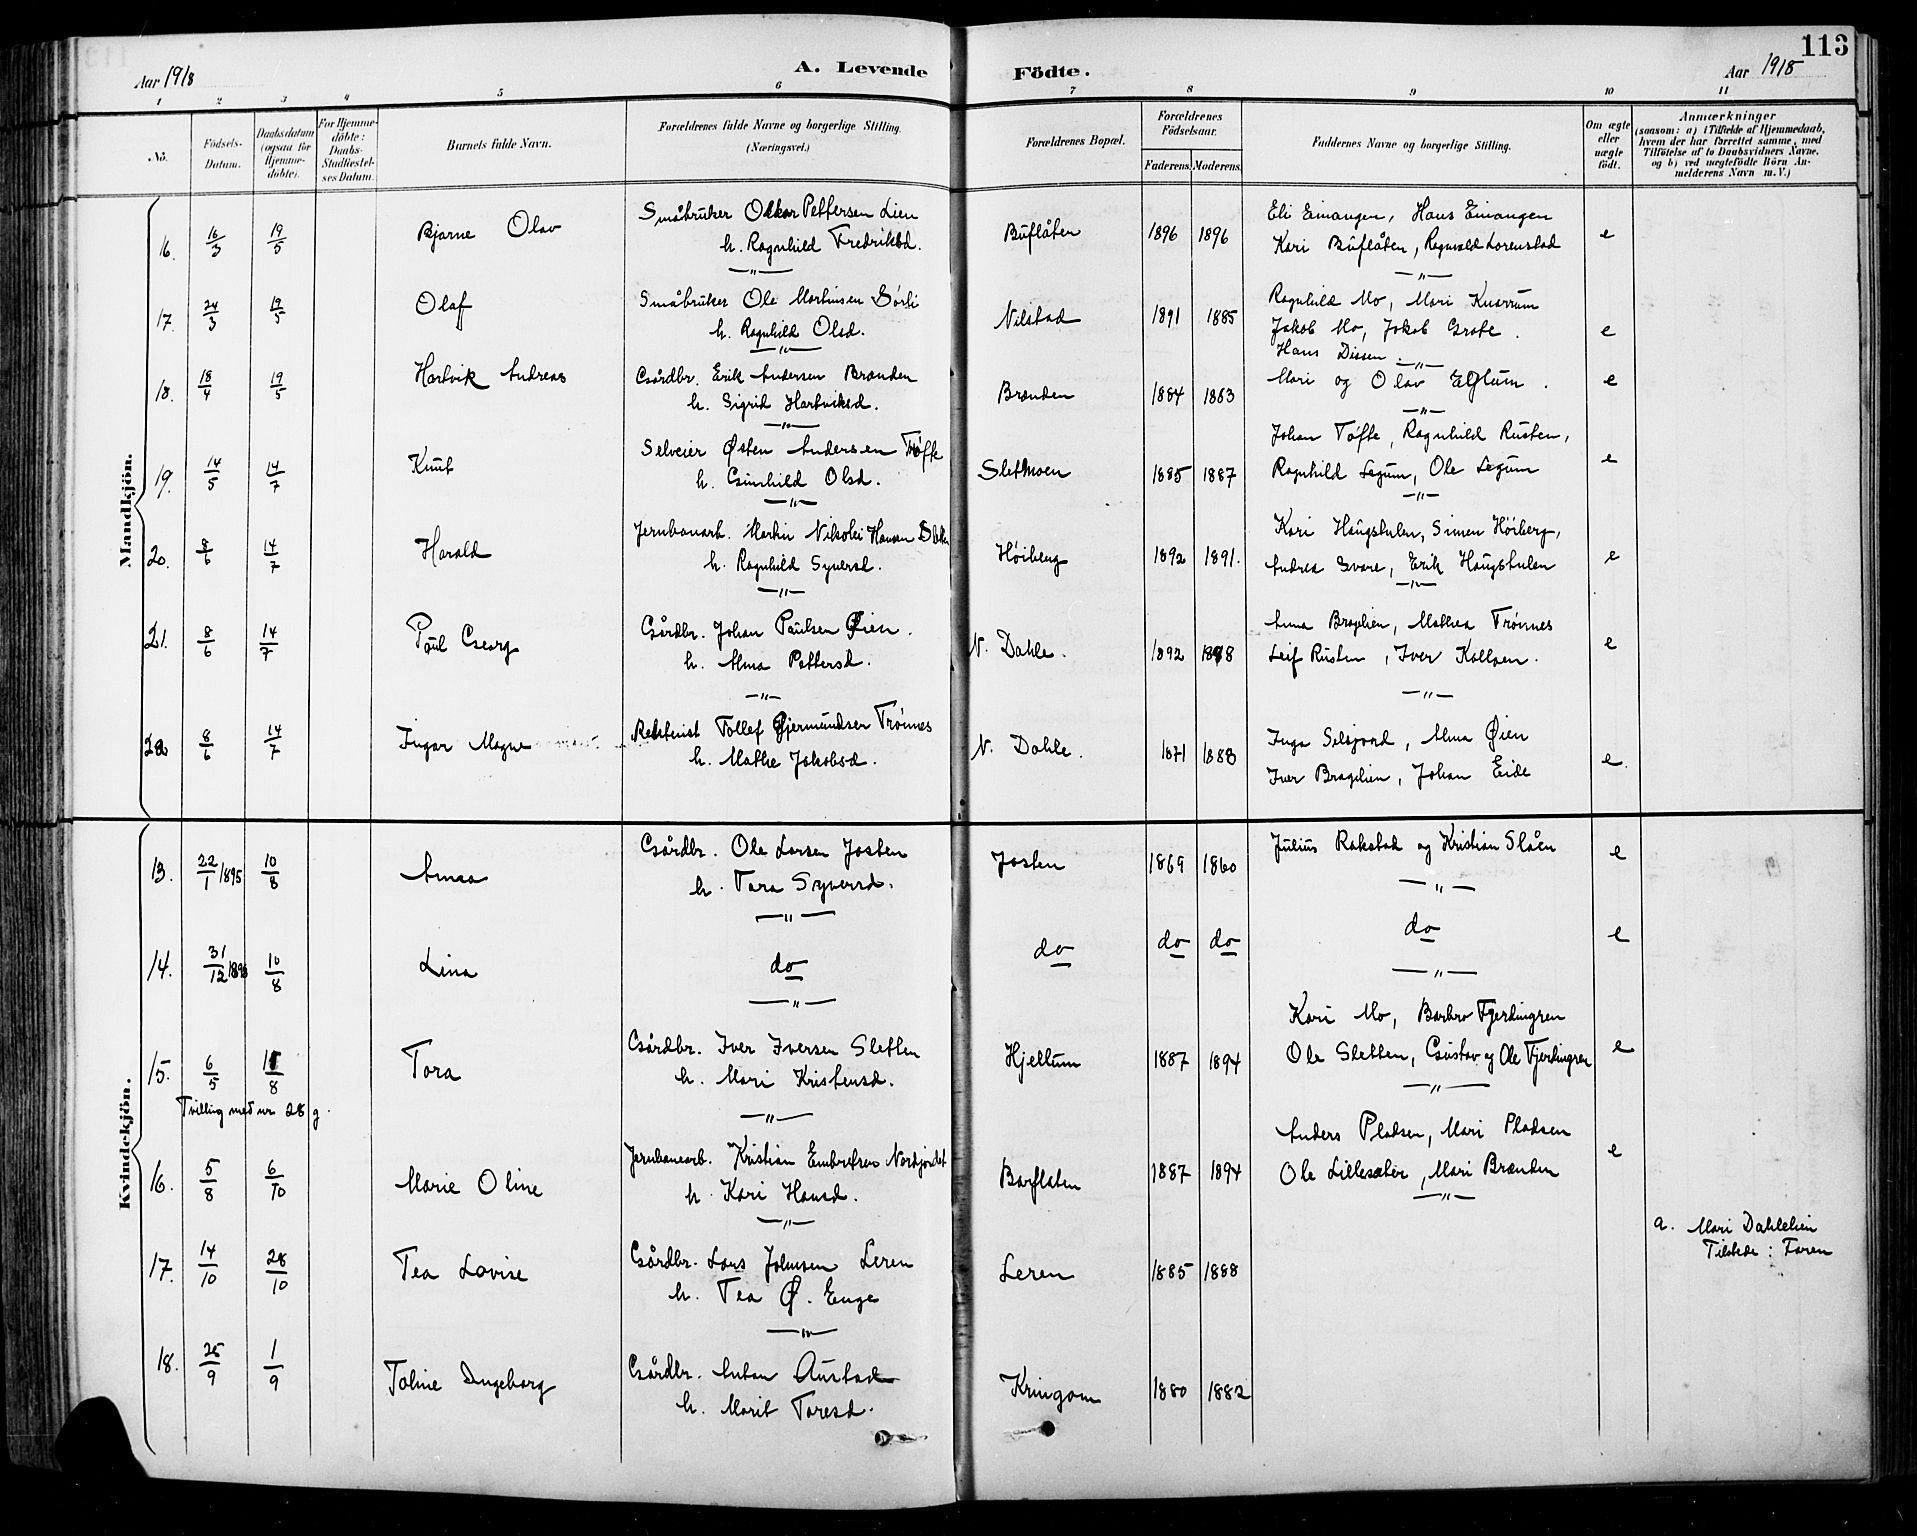 113
Aar 1918
A. Levende Födte.
Aar 1918
1 2 3 4 5 6 7 8 9 10 11
No.
Födsels-Datum.
Daabsdatum (ogsaa for Hjemme-döbte).
For Hjemme-döbte: Daabs-Stadfæstel-ses Datum.
Barnets fulde Navn.
Forældrenes fulde Navne og borgerlige Stilling.
(Næringsvei.)
Forældrenes Bopæl.
Forældrenes Födselsaar.
Faderens. Moderens.
Faddernes Navne og borgerlige Stilling.
Om ægte eller uægte födt.
Anmærkninger
(saasom: a) i Tilfælde af Hjemmedaab, hvem der har forrettet samme, med Tilföielse af to Daabsvidners Navne, og b) ved uægtefödte Börn An-melderens Navn m. V.)
Mandkjön.
16. 16/3 19/5 Bjarne Olav Småbruker Oskar Pettersen Lien Buflåten 1896 1896 Eli Einangen, Hans Einangen e
h. Ragnhild Fredriksd. Kari Buflåten, Ragnvald Lorenstad
17. 24/3 19/5 Olaf Småbruker Ole Martinsen Sørli Nilstad 1891 1885 Ragnhild Mo, Mari e
h. Ragnhild Olsd. Jakob Mo, Jakob
Hans Dissen.
18. 18/4 19/5 Hartvik Andreas Gårdbr. Erik Andersen Brænden Brænden 1884 1883 Mari og Olav . e
h. Sigrid Hartviksd.
19. 14/5 14/7 Knut Selveier Østen Andersen Tøfte Sletmoen 1885 1887 Johan Tøfte, Ragnhild Rusten, e
h. Gunhild Olsd. Ragnhild Segum, Ole Segum
20. 8/6 14/7 Harald Jernbanarb. Martin Nikolei Hansen Høiberg 1892 1891. Kari Haugstulen, Simen Høiberg, e
h. Ragnhild Syversd. Andrea Svare, Erik Haugstulen
21. 8/6 14/7 Paul Georg Gårdbr. Johan Paulsen Øien. N. Dahle. 1892 1898 Anna Bragelien, Mathea Trønnes e
h. Alma Pettersd. Leif Rusten, Iver Kolloen.
22 8/6 14/7 Ingar Magne Tollef Gjermundsen Trønnes N. Dahle. 1871 1888 Inga Selsjord, Alma Øien e.
h. Mathe Jakobsd. Iver Bragelien, Johan Eide
Kvindekjön.
13. 22/1 1895 10/8 Anna Gårdbr. Ole Larsen Josten Josten 1869 1860 Julius Rakstad og Kristian Slåen e
h. Tora Syversd.
14. 31/12 10/8 Lina do do do do do e
15. 6/5 /8 Tora Gårdbr. Iver Iversen Sletten Hjeltum 1887 1894 Kari Mo, Barbro Fjerdingren e
h. Mari Kristensd. Ole Sletten, Gustav og Ole Fjerdingren
Tvilling med nr 28 g.
16. 5/8 6/10 Marie Oline Jernbanearb. Kristian Embretsen Nordjordet Barflaten 1887 1894 Anders Pladsen, Mari Pladsen e
h. Kari Hansd. Ole Lillesæter, Mari Brænden
17. 14/10 28/10 Tea Lovise Gårdbr. Lars Johnsen Leren Leren 1885 1888 a. Mari Dahlelien
h. Tea Ø. Enge Tilstede: Faren
18. 25/9 1/9 Toline Ingeborg Gårdbr. Anton Austad Kringom 1880 1882
h. Marit Toresd.